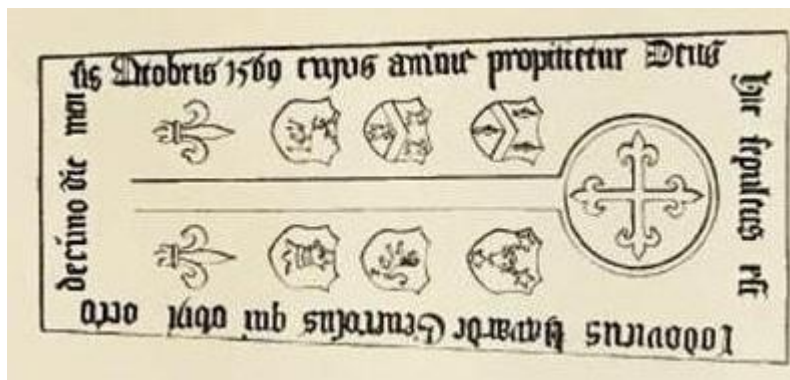 Hic sepultus est
Lodovicus Havarde Generosus qui obijt octo
decimo die men
sis Octobris 1569 cujus anime propitietur Deus